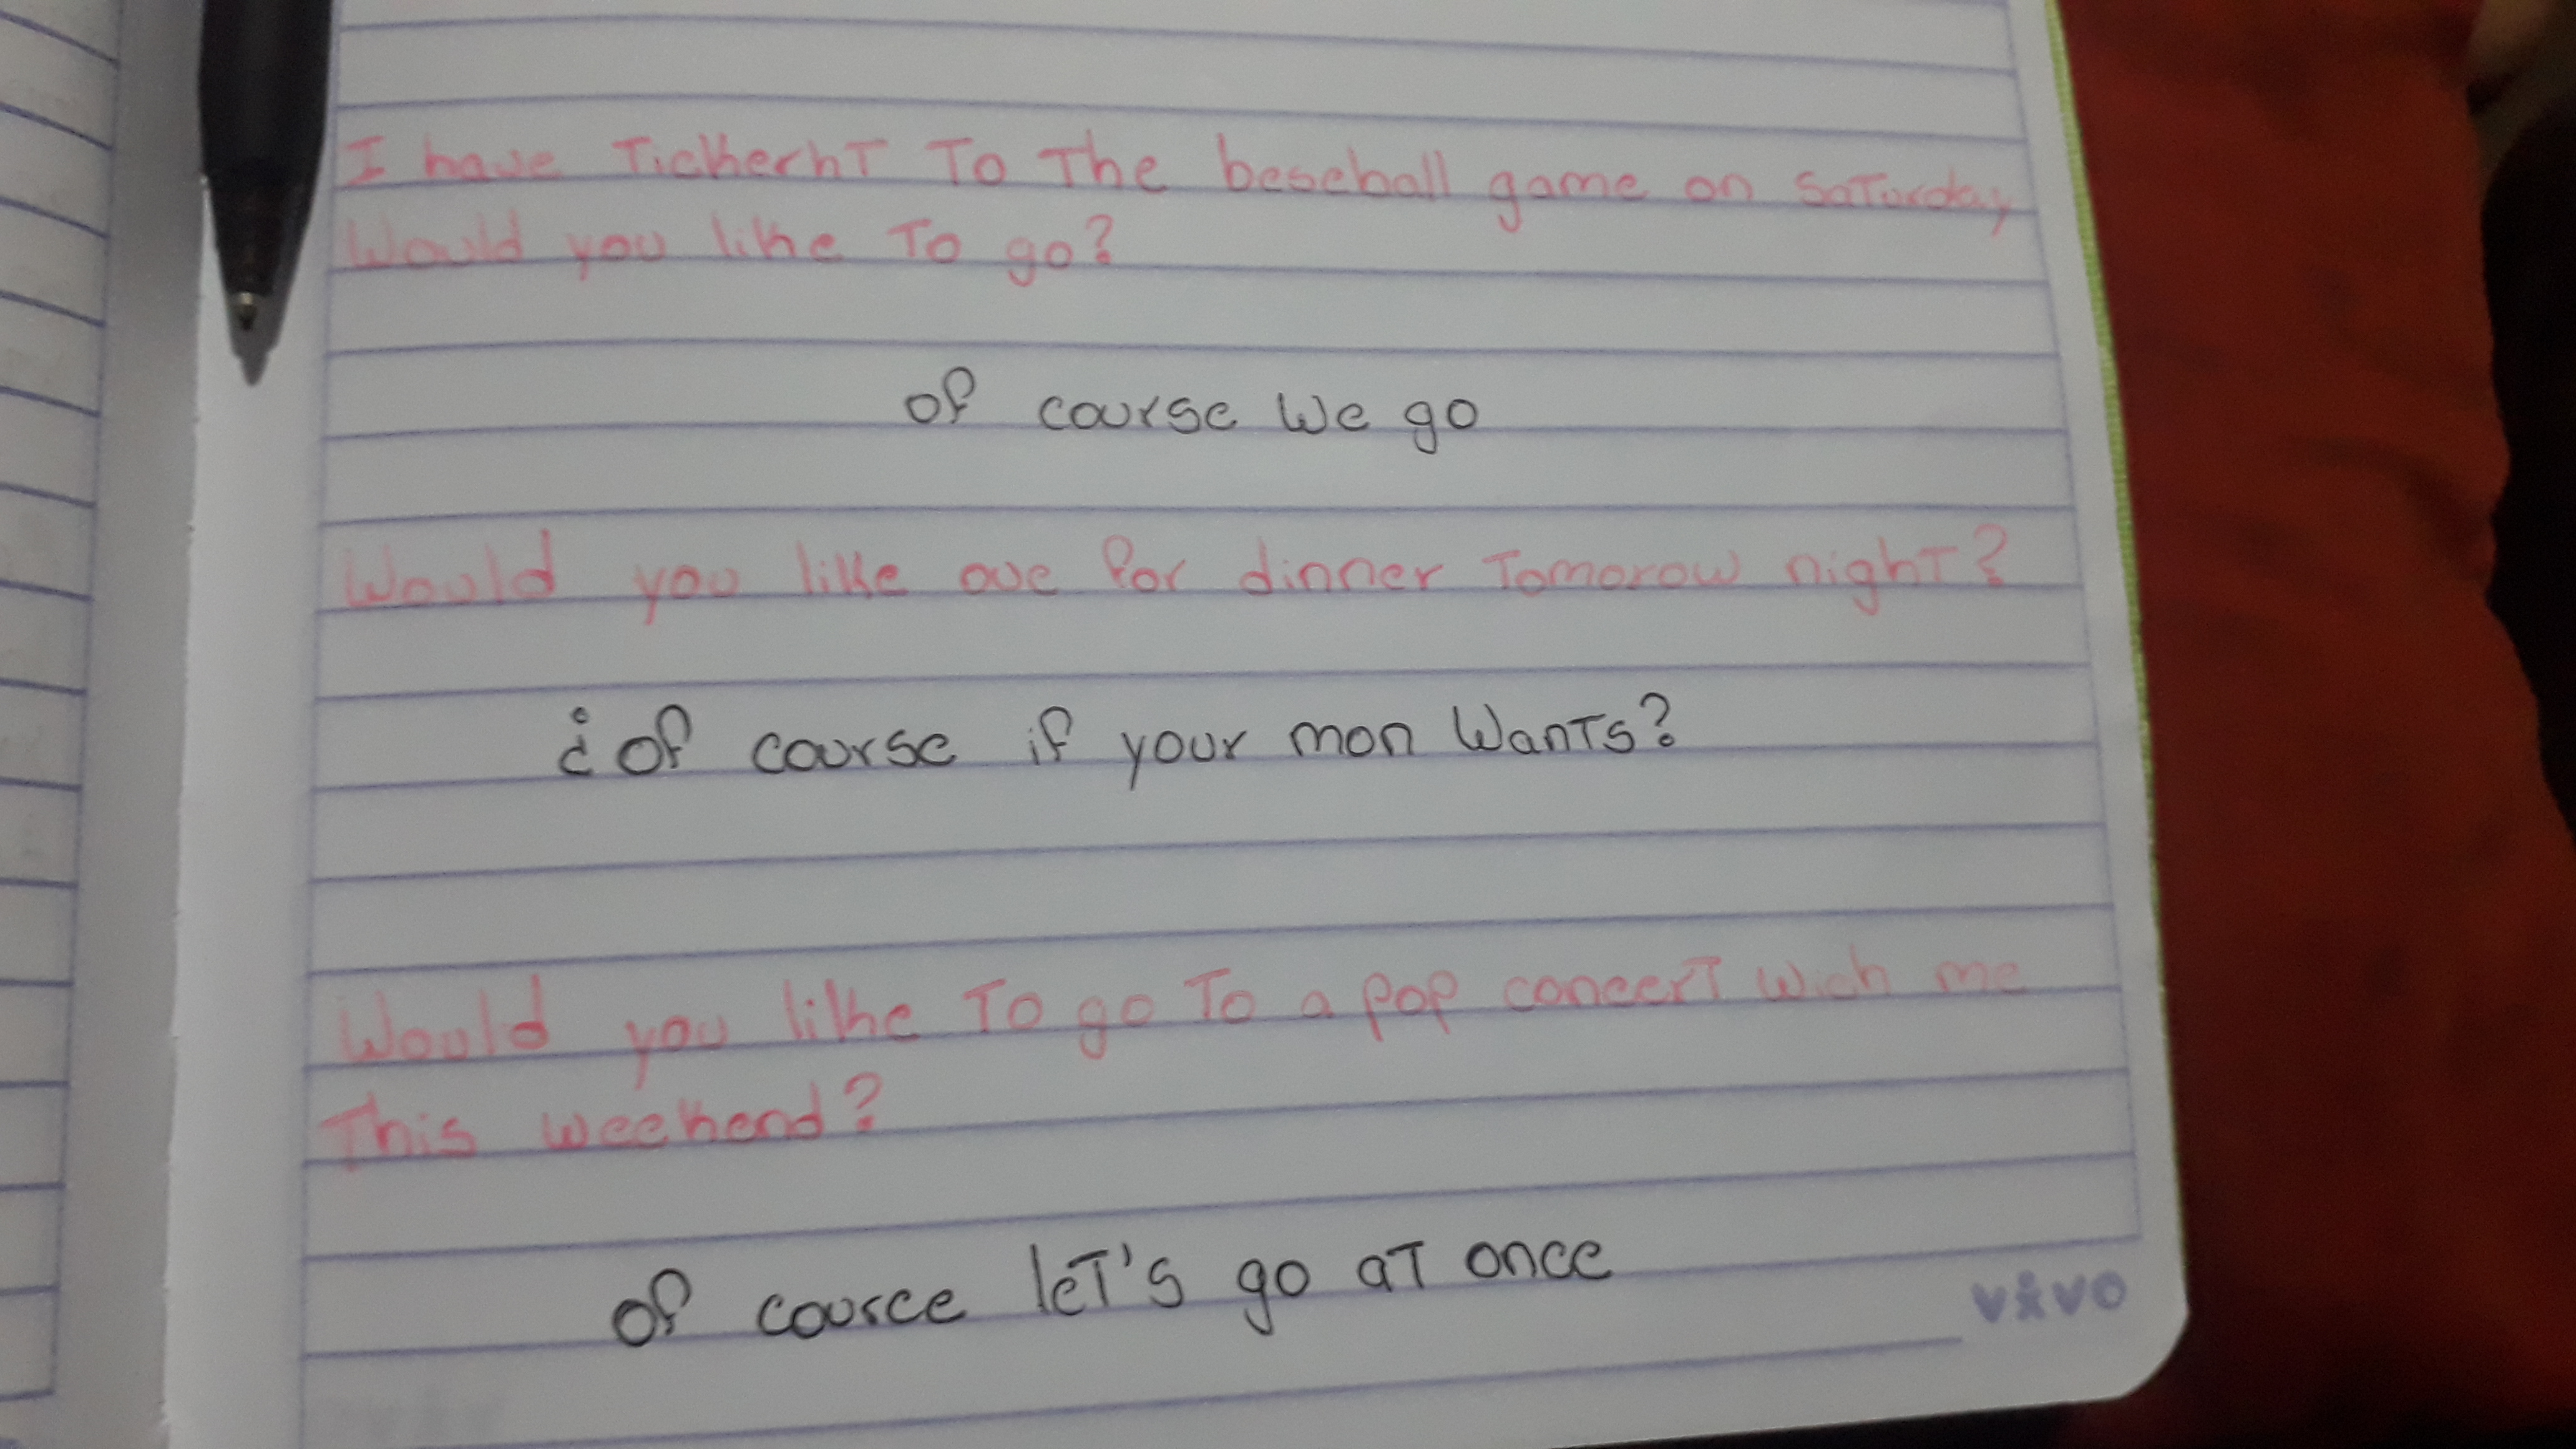 I have Tickerht To The beseball game on Saturday
Would you like To go?
of course We go
Would you like ove for dinner Tomorow night?
¿of course if your mon Wants?
Would you like To go To a pop concert wich me
This weekend?
of cource let's go at once
vivo